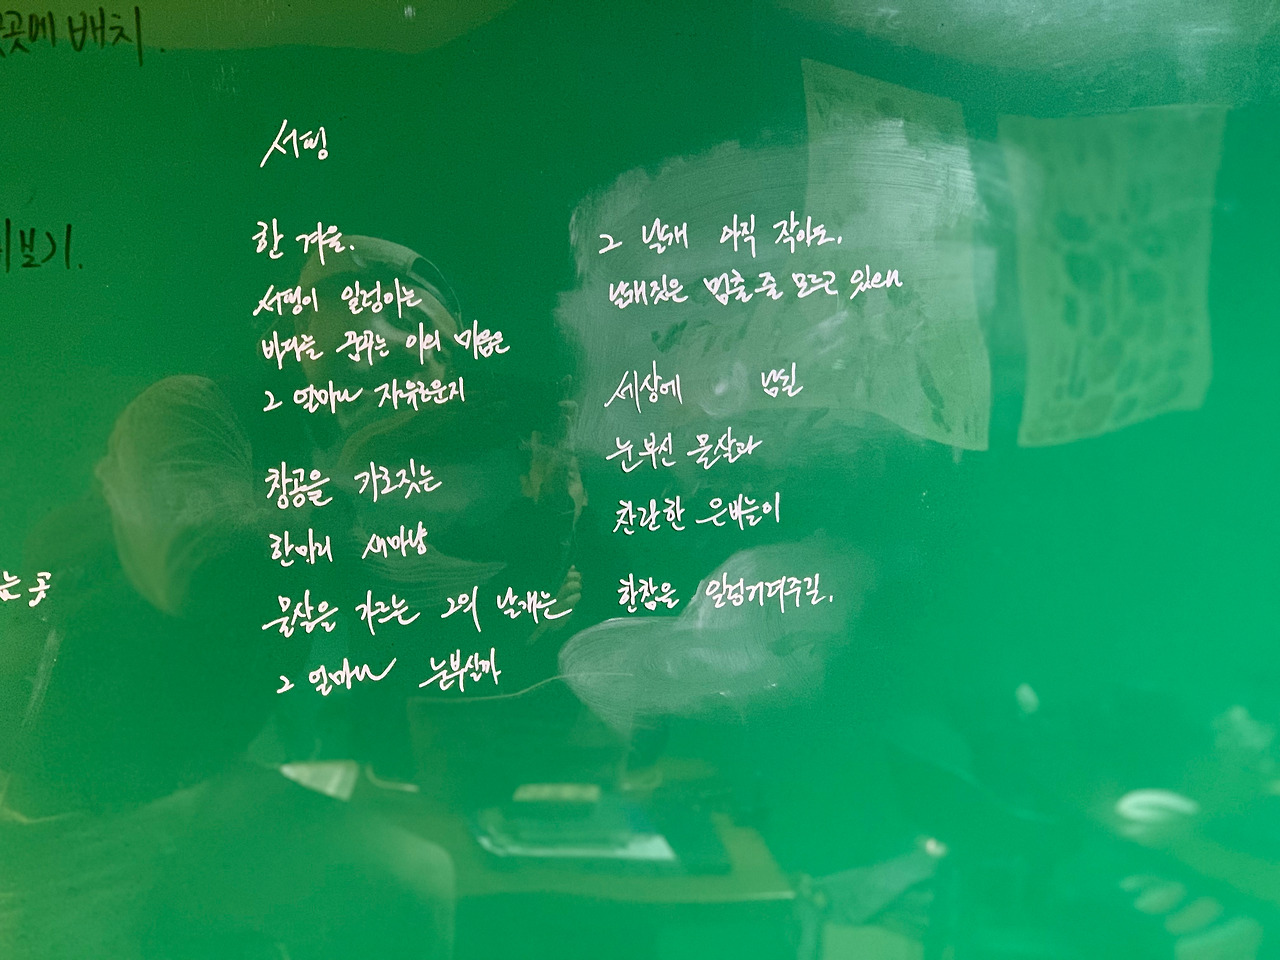 곳에 배치.
보기.
는 공
서핑
한 겨울.
서핑이 일렁이는
바다를 꿈꾸는 이의 마음은
그 얼마나 자유로운지
창공을 가로짓는
한마리 새마냥
물살을 가르는 그의 날개는
그 얼마나 눈부실까
그 날개 아직 작아도.
날개짓은 멈출 줄 모르고 있으니
세상에 남길
눈부신 물살과
찬란한 은비늘이
한참을 일렁거려주길.